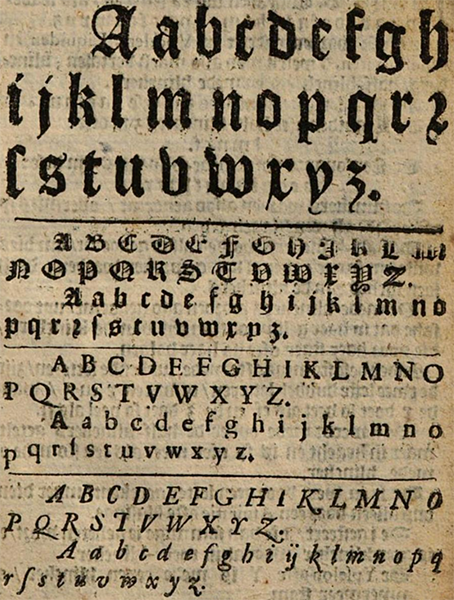 Aabcdefgh
ijklmnopqrꝛ
ſstuvwxyz.
A B C D E F G H I K L M
N O P Q R S T V W X Y Z.
A a b c d e f g h i j k l m n o
p q r ꝛ ſ s t u v w x y z.
A B C D E F G H I K L M N O
P Q R S T V W X Y Z.
A a b c d e f g h i j k l m n o
p q r ſ s t u v w x y z.
A B C D E F G H I K L M N O
P Q R S T V W X Y Z.
A a b c d e f g h ij k l m n o p q
r ſ s t u v w x y z.